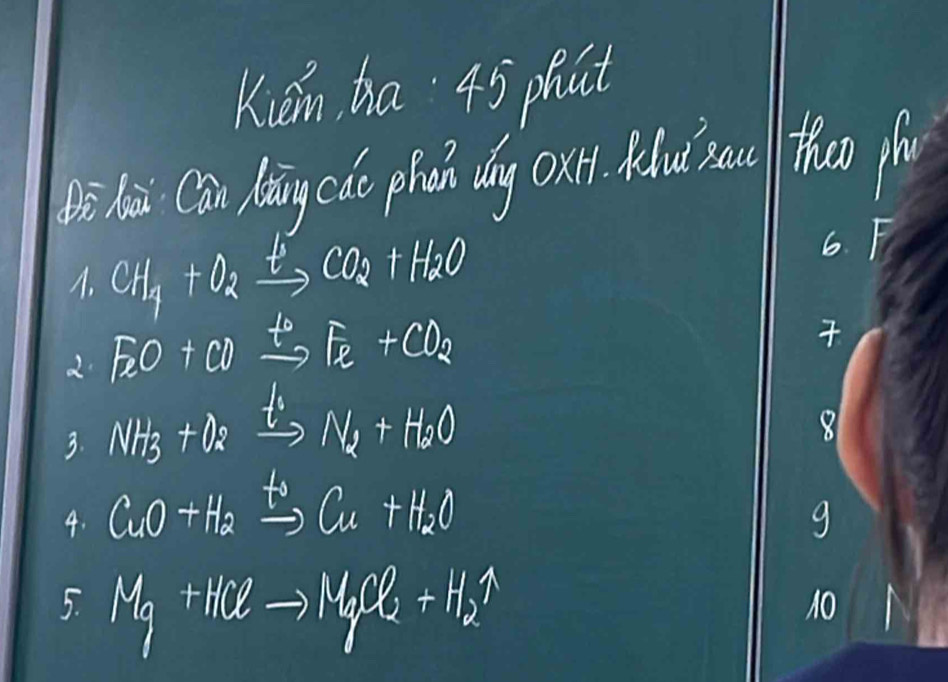 Kiểm tra : 45 phút
Đề bài : Cân bằng các phản ứng OXH. khử sau theo
1. CH4 + O2 t°→ CO2 + H2O
2. FeO + CO t°→ Fe + CO2
3. NH3 + O2 t°→ N2 + H2O
4. CuO + H2 t°→ Cu + H2O
5. Mg + HCl → MgCl2 + H2↑
6.
7
8
9
10